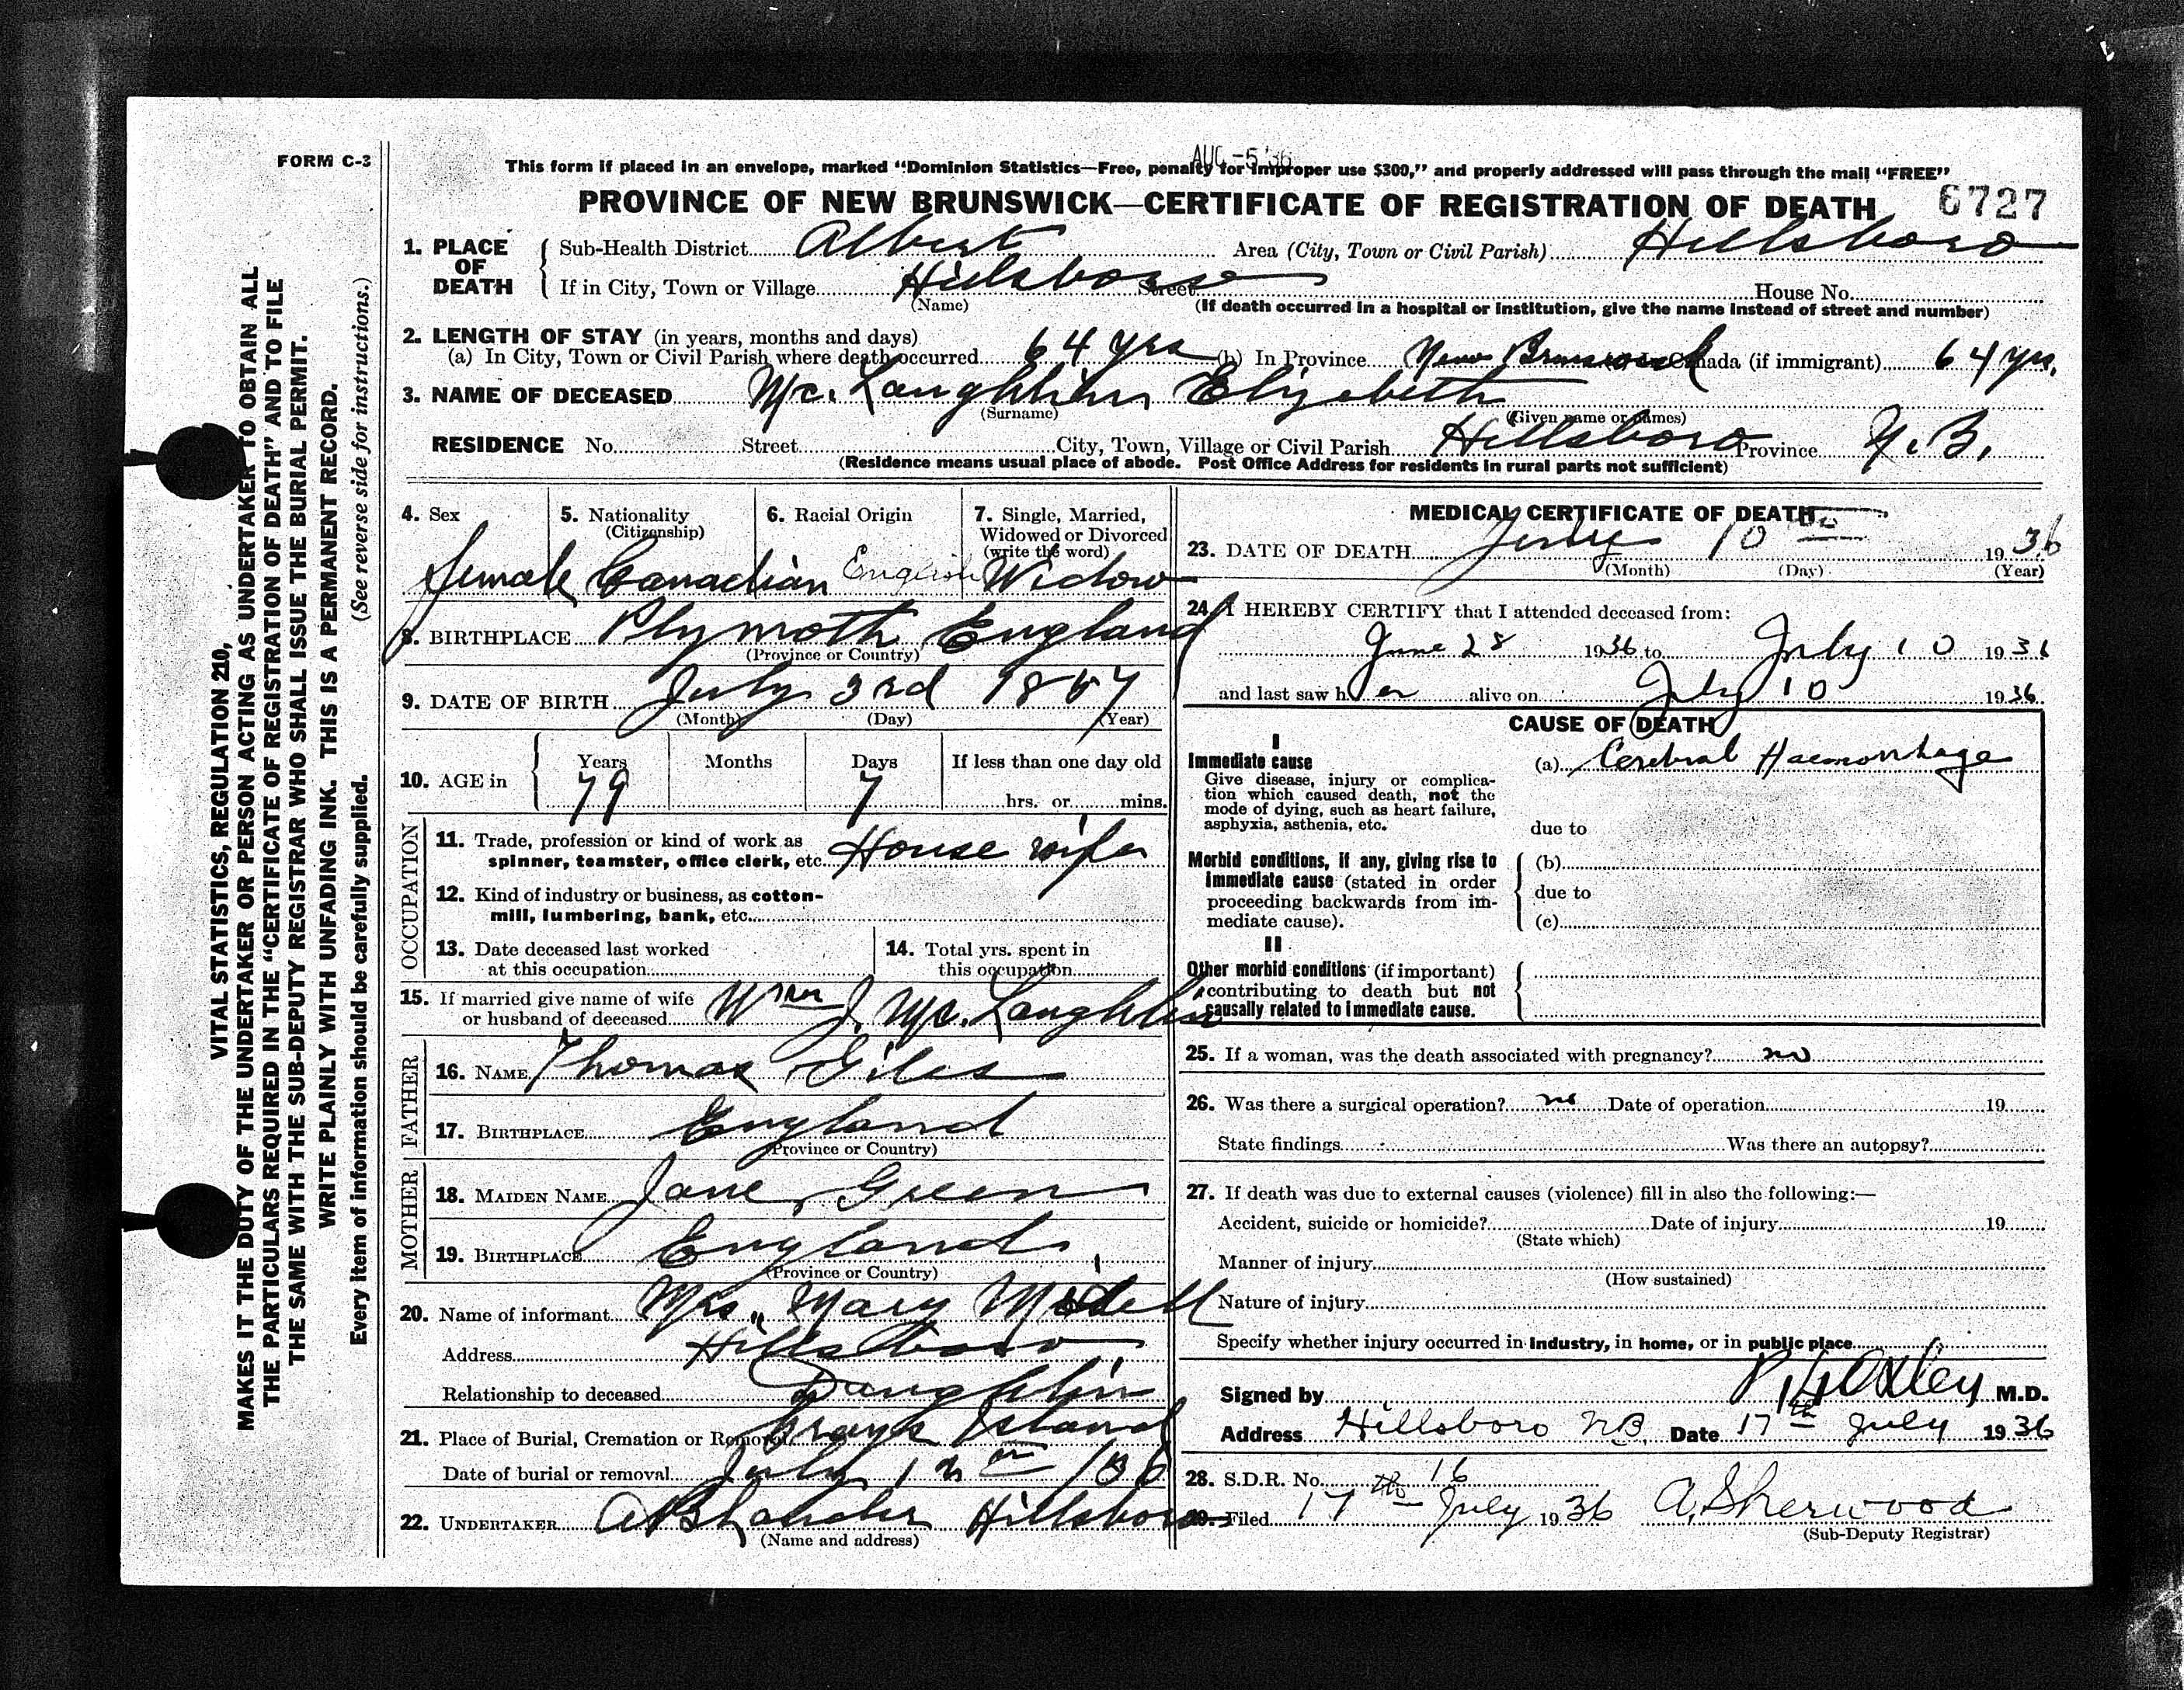 FORM C-3
VITAL STATISTICS, REGULATION 210,
MAKES IT THE DUTY OF THE UNDERTAKER OR PERSON ACTING AS UNDERTAKER TO OBTAIN ALL
THE PARTICULARS REQUIRED IN THE "CERTIFICATE OF REGISTRATION OF DEATH" AND TO FILE
THE SAME WITH THE SUB-DEPUTY REGISTRAR WHO SHALL ISSUE THE BURIAL PERMIT.
WRITE PLAINLY WITH UNFADING INK. THIS IS A PERMANENT RECORD.
Every item of information should be carefully supplied. (See reverse side for instructions.)
AUG -5 '36
This form if placed in an envelope, marked "Dominion Statistics—Free, penalty for improper use $300," and properly addressed will pass through the mail "FREE"
PROVINCE OF NEW BRUNSWICK—CERTIFICATE OF REGISTRATION OF DEATH 6727
1. PLACE OF DEATH Sub-Health District Albert Area (City, Town or Civil Parish) Hillsboro
If in City, Town or Village Hillsboro Street House No.
(Name) (If death occurred in a hospital or institution, give the name instead of street and number)
2. LENGTH OF STAY (in years, months and days)
(a) In City, Town or Civil Parish where death occurred 64 yrs (b) In Province New Brunswick In Canada (if immigrant) 64 yrs.
3. NAME OF DECEASED Mc.Laughlin Elizebeth
(Surname) (Given name or names)
RESIDENCE No. Street City, Town, Village or Civil Parish Hillsboro Province N.B.
(Residence means usual place of abode. Post Office Address for residents in rural parts not sufficient)
4. Sex 5. Nationality (Citizenship) 6. Racial Origin 7. Single, Married, Widowed or Divorced (write the word)
female Canadian English Widow
8. BIRTHPLACE Plymoth England
(Province or Country)
9. DATE OF BIRTH July 3rd 1857
(Month) (Day) (Year)
10. AGE in Years Months Days If less than one day old
79 7 hrs. or mins.
OCCUPATION
11. Trade, profession or kind of work as
spinner, teamster, office clerk, etc. House wife
12. Kind of industry or business, as cotton-
mill, lumbering, bank, etc.
13. Date deceased last worked
at this occupation
14. Total yrs. spent in
this occupation
15. If married give name of wife
or husband of deceased Wm J. Mc.Laughlin
FATHER
16. NAME Thomas Giles
17. BIRTHPLACE England
(Province or Country)
MOTHER
18. MAIDEN NAME Jane Green
19. BIRTHPLACE England
(Province or Country)
20. Name of informant Mrs. Mary
Address Hillsboro
Relationship to deceased Daughter
21. Place of Burial, Cremation or Removal Grays Island
Date of burial or removal July
22. UNDERTAKER Hillsboro
(Name and address)
MEDICAL CERTIFICATE OF DEATH
23. DATE OF DEATH July 10th 1936
(Month) (Day) (Year)
24. I HEREBY CERTIFY that I attended deceased from:
June 28 1936 to July 10 1936
and last saw her alive on July 10 1936
CAUSE OF DEATH
I
Immediate cause (a) Cerebral Haemorrhage
Give disease, injury or complica-
tion which caused death, not the
mode of dying, such as heart failure,
asphyxia, asthenia, etc.
due to
Morbid conditions, if any, giving rise to (b)
immediate cause (stated in order due to
proceeding backwards from im-
mediate cause). (c)
II
Other morbid conditions (if important)
contributing to death but not
causally related to immediate cause.
25. If a woman, was the death associated with pregnancy? no
26. Was there a surgical operation? no Date of operation 19
State findings Was there an autopsy?
27. If death was due to external causes (violence) fill in also the following:—
Accident, suicide or homicide? Date of injury 19
(State which)
Manner of injury
(How sustained)
Nature of injury
Specify whether injury occurred in industry, in home, or in public place
Signed by M.D.
Address Hillsboro N.B. Date 17th July 1936
28. S.D.R. No. 16
29. Filed 17th July 1936 A. Sherwood
(Sub-Deputy Registrar)